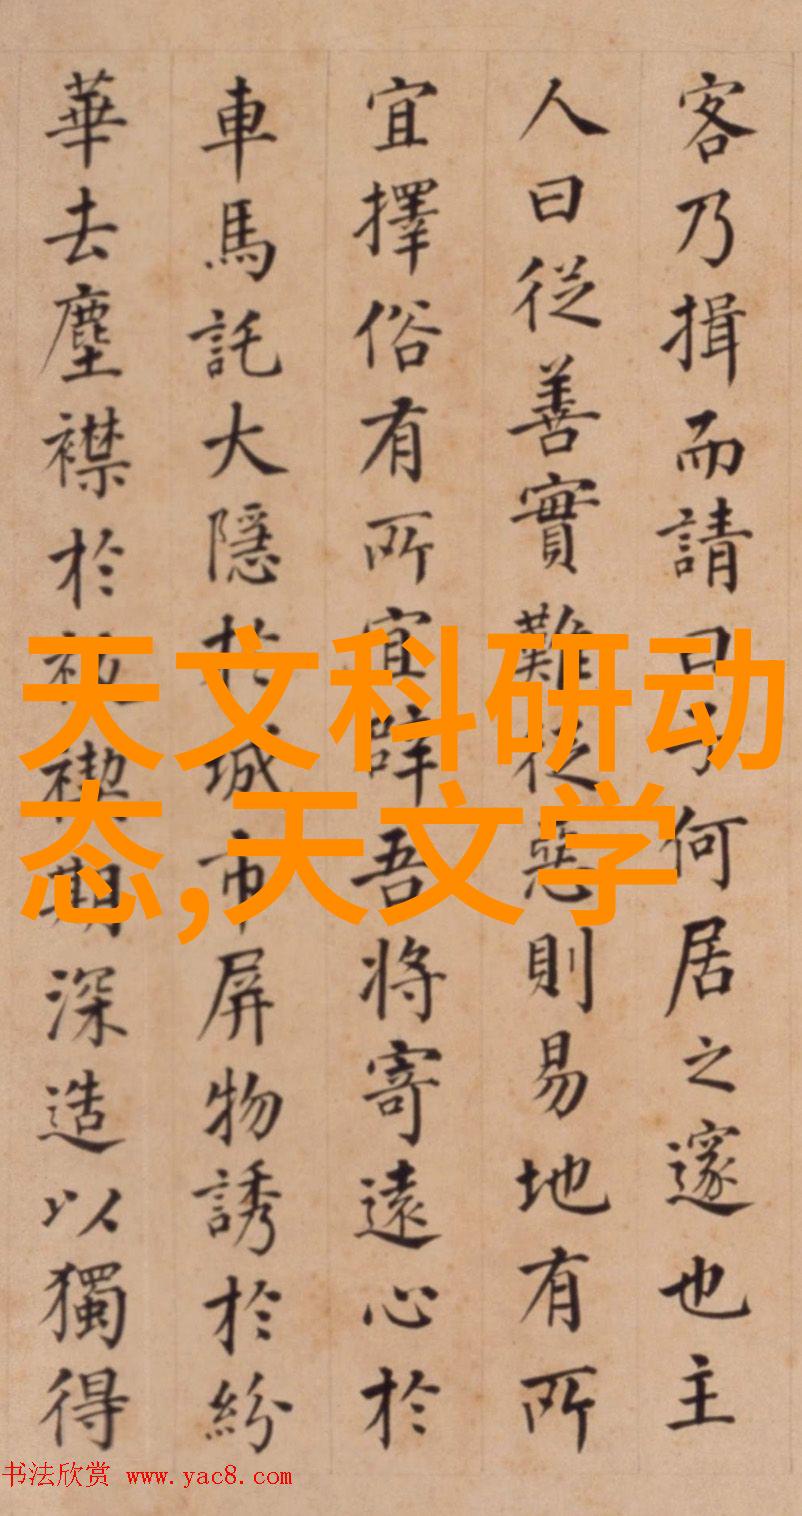 客乃揖而請曰予何居之邃也主
人曰從善實難從惡則易地有所
宜擇俗有所宜辟吾将寄遠心於
車馬託大隱於城市屏物誘於紛
華去塵襟於祓禊期深造以獨得
天文科研动
态,天文学
书法欣赏 www.yac8.com